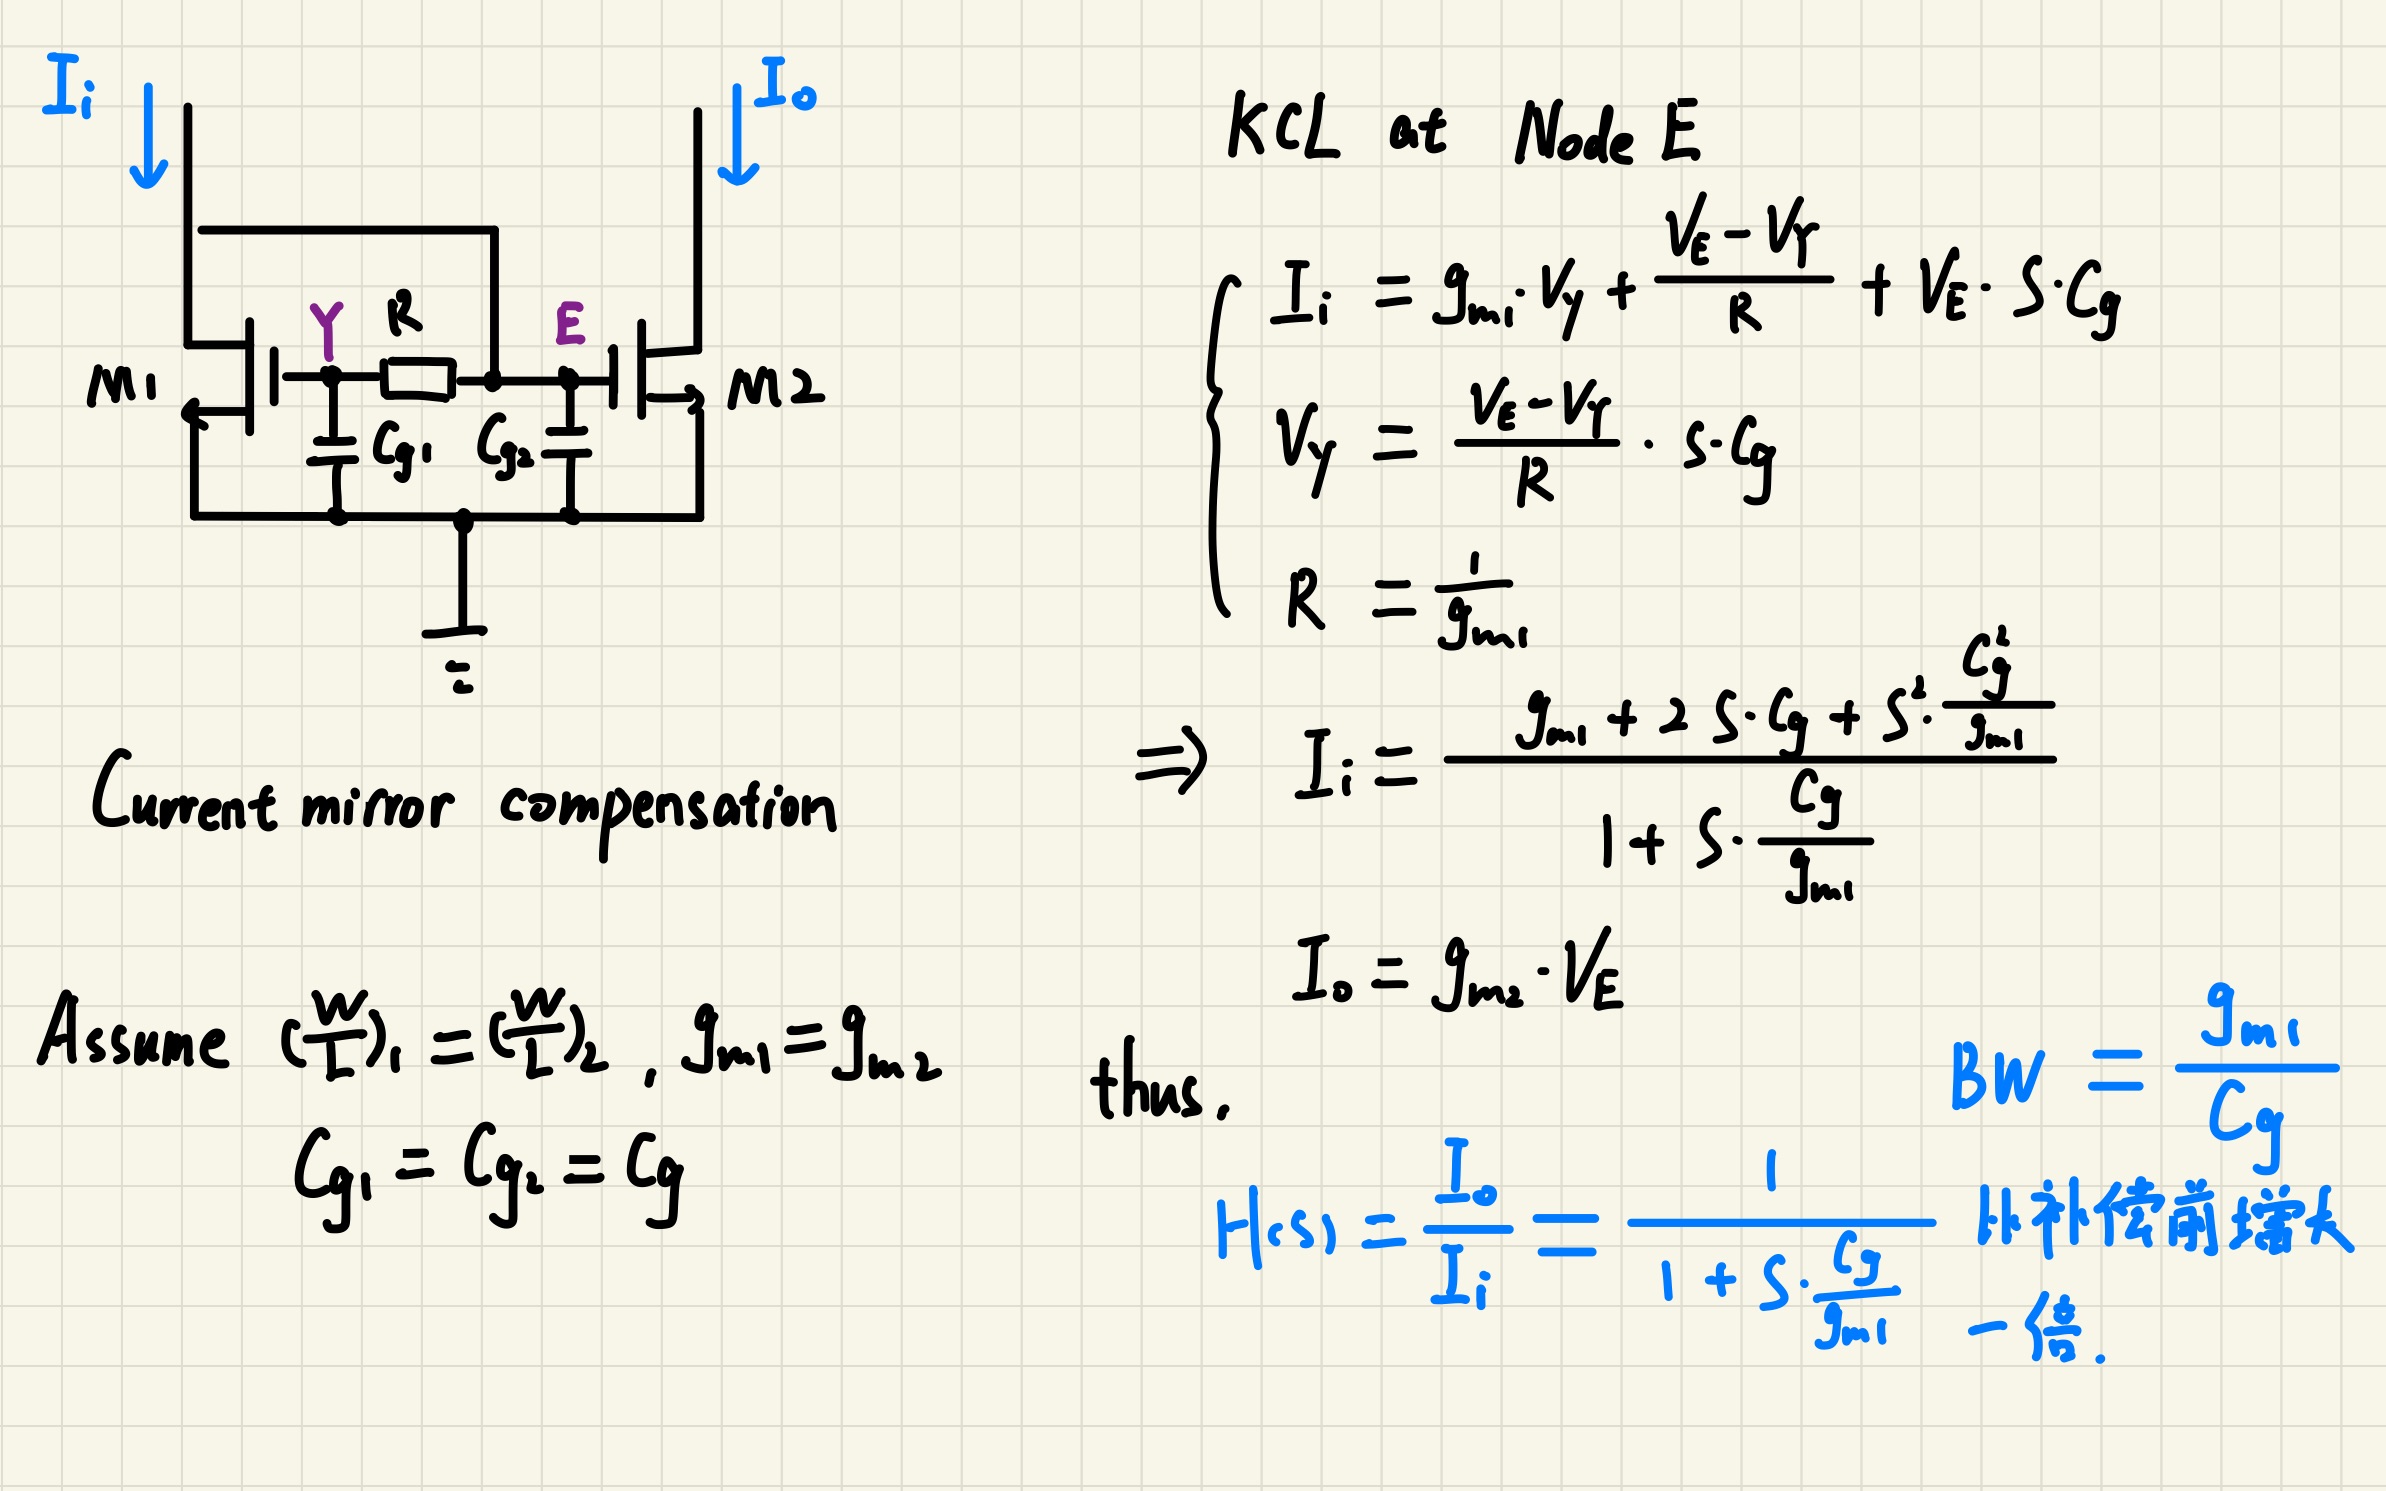 I_i
I_o
Y
R
E
M1
M2
C_g1
C_g2
Current mirror compensation
Assume (W/L)_1 = (W/L)_2, g_m1 = g_m2
C_g1 = C_g2 = C_g
KCL at Node E
I_i = g_m1 · V_y + (V_E - V_Y)/R + V_E · S · C_g
V_y = (V_E - V_Y)/R · S · C_g
R = 1/g_m1
⇒ I_i = (g_m1 + 2 S · C_g + S² · C_g²/g_m1)/(1 + S · C_g/g_m1)
I_o = g_m2 · V_E
thus,
BW = g_m1/C_g
H(s) = I_o/I_i = 1/(1 + S · C_g/g_m1)
比补偿前增大
一倍.